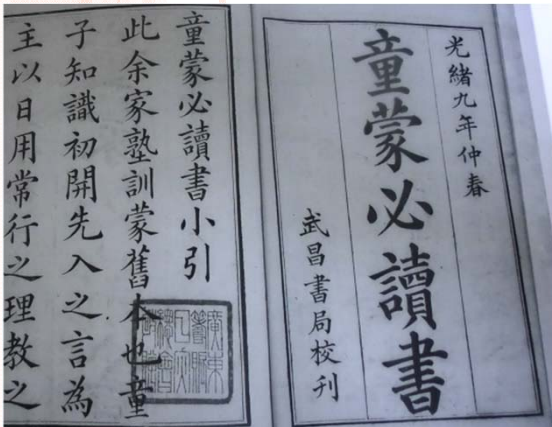 光緒九年仲春
童蒙必讀書
武昌書局校刊
童蒙必讀書小引
此余家塾訓蒙舊本也童
子知識初開先入之言為
主以日用常行之理教之